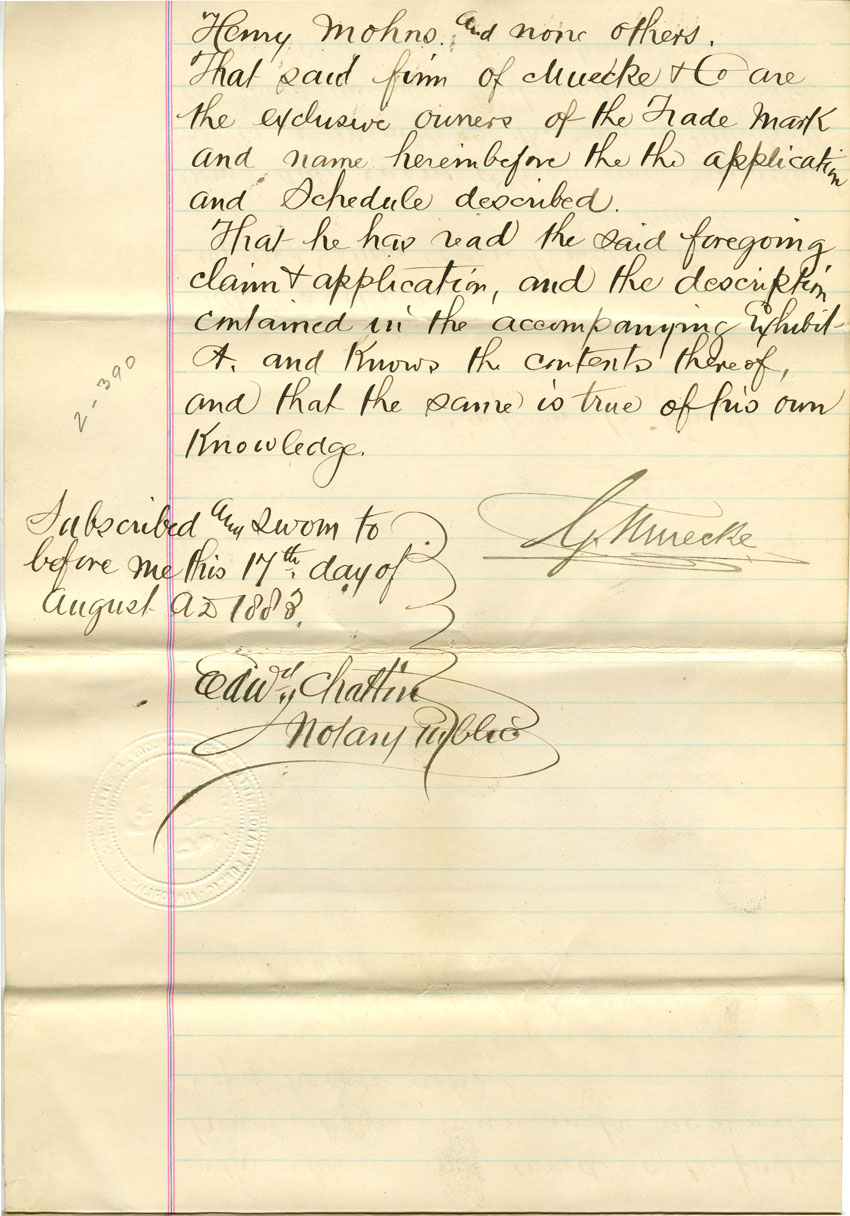 Henry Mohns. and none others.
That said firm of Muecke & Co are
the exclusive owners of the Trade Mark
and name hereinbefore the the application
and Schedule described.
That he has read the said foregoing
claim & application, and the description
contained in the accompanying Exhibit
A. and Knows the contents thereof,
and that the same is true of his own
Knowledge.
2-390
G. Muecke
Subscribed and sworn to
before me this 17th day of
August AD 1883.
Edwd Chattin
Notary Public